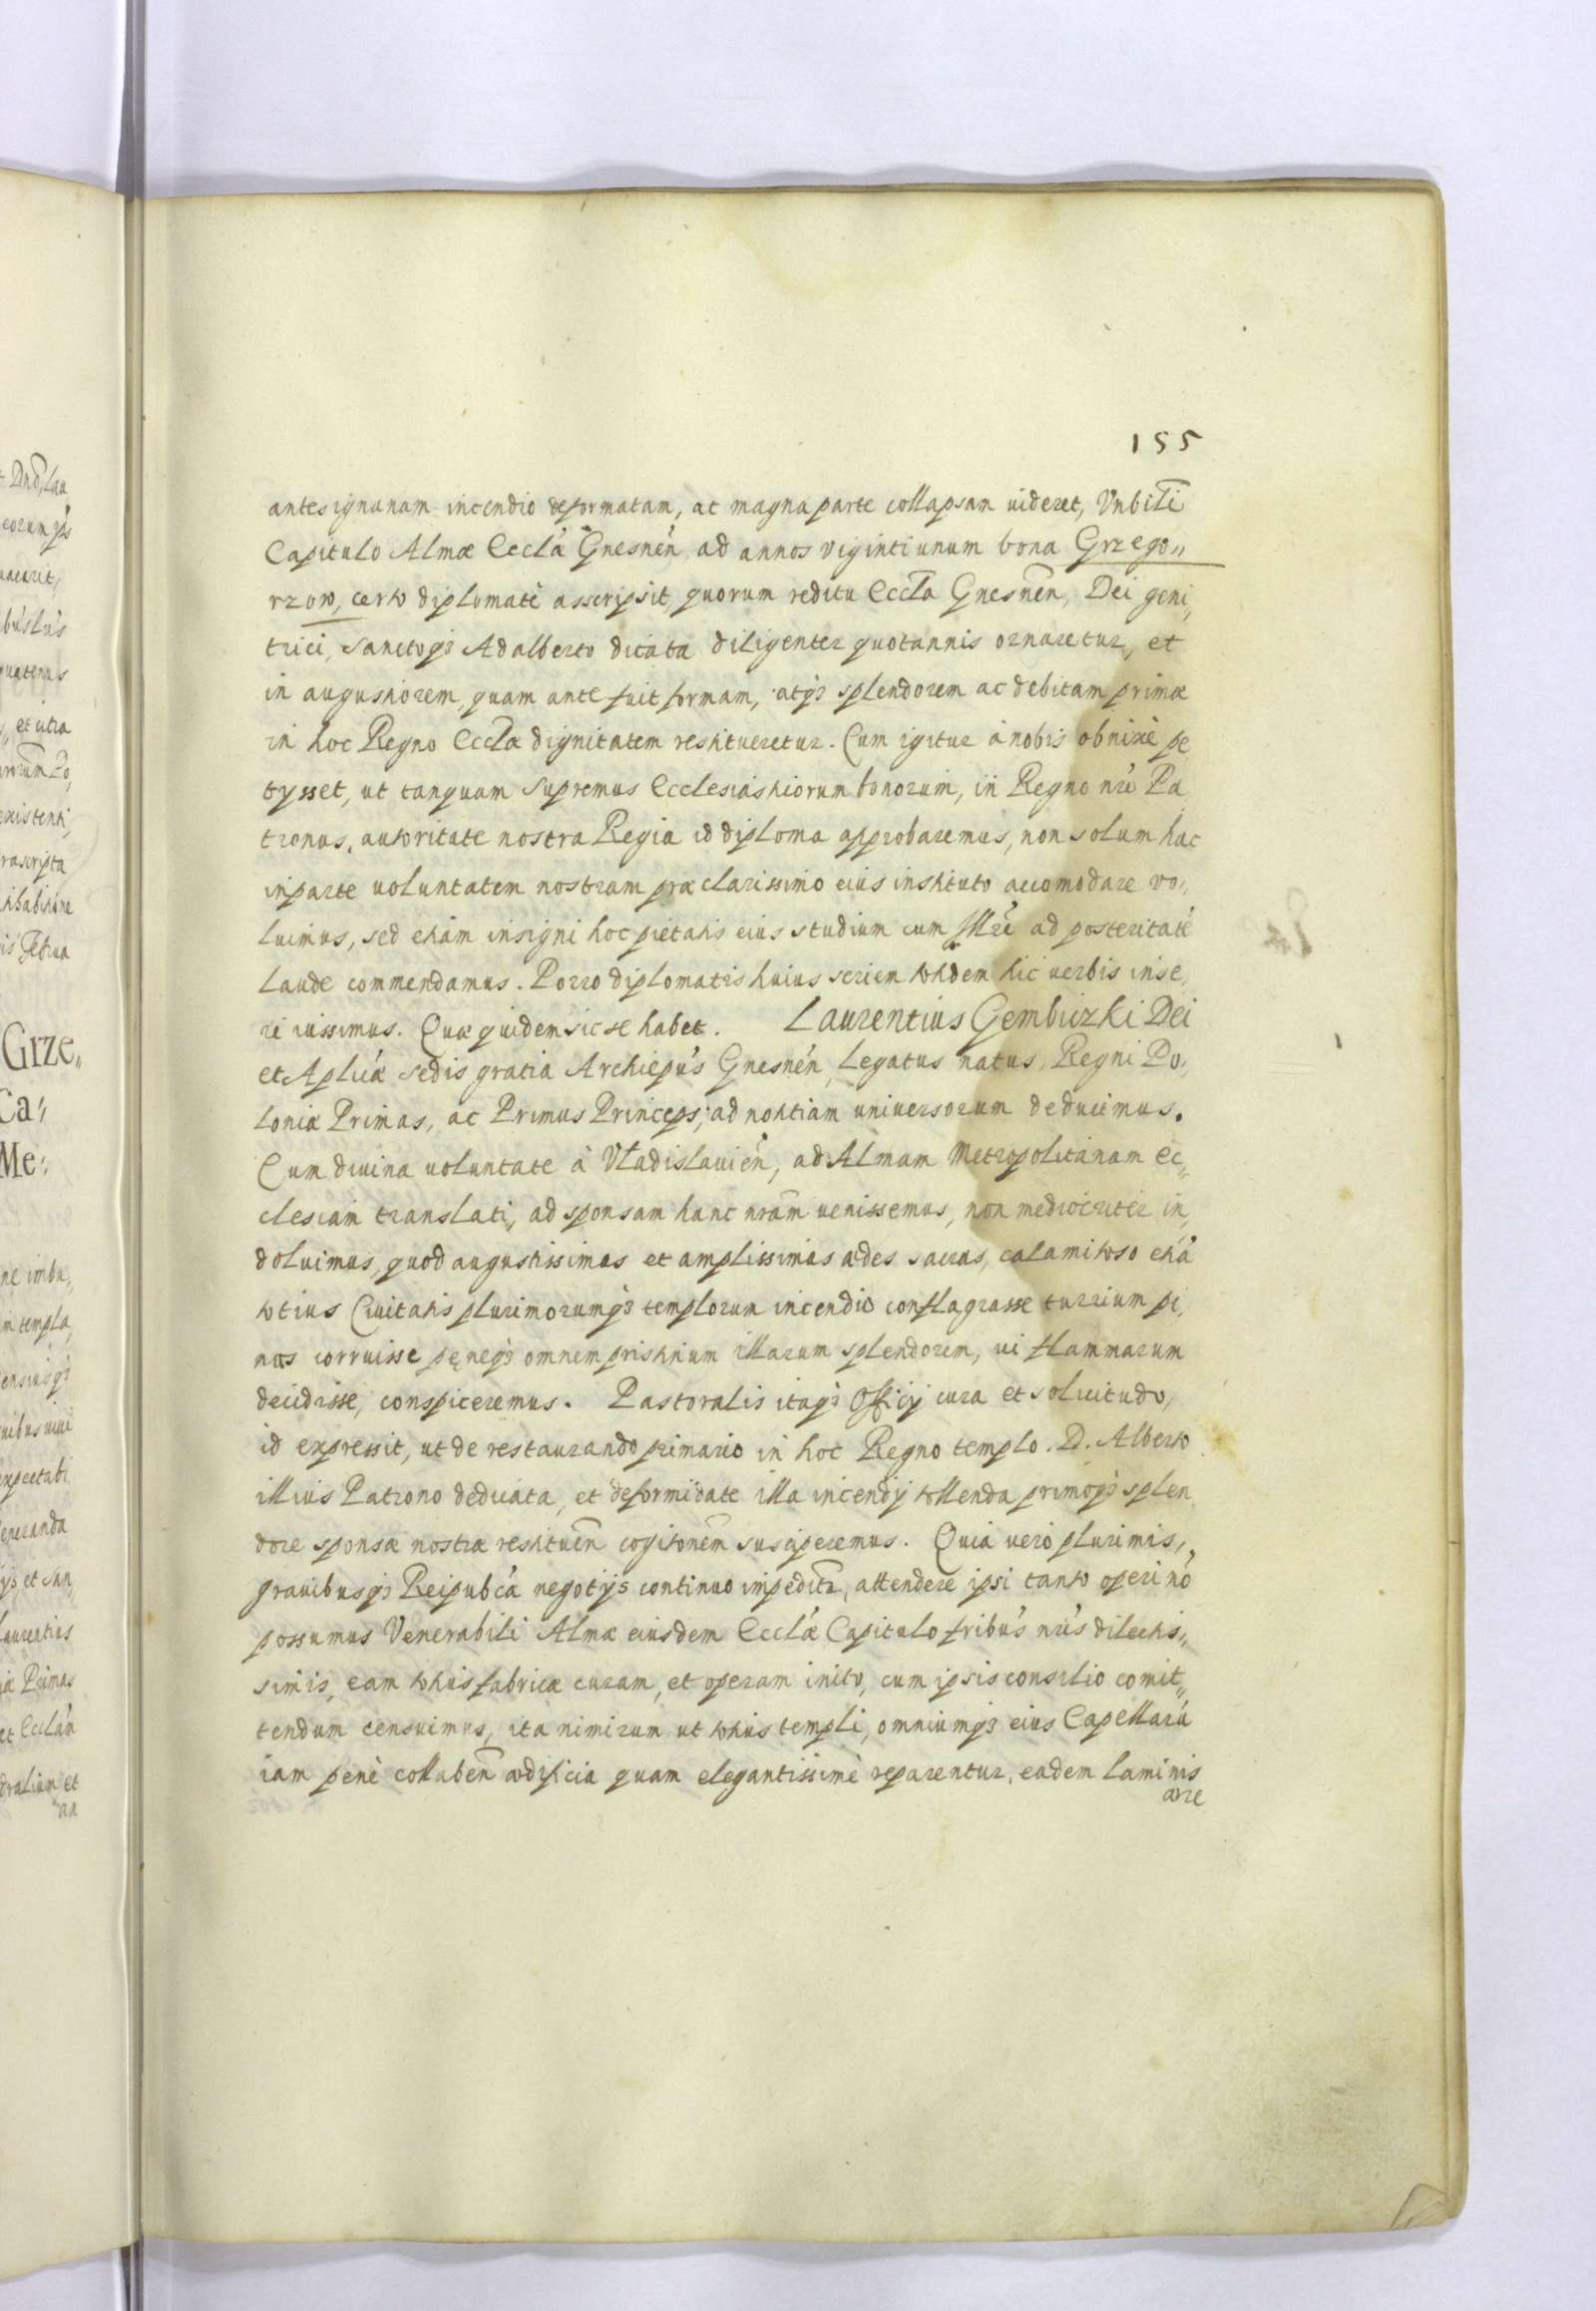 155
antesignanam incendio deformatam, ac magna parte collapsam uideret, Vnbili
Capitulo Almæ Ecclæ Gnesnen ad annos viginti unum bona Grzego,,
rzow, certo diplomate asscripsit, quorum reditu Eccla Gnesnen, Dei geni,,
trici, sanctoq3 Adalberto dicata diligenter quotannis ornaretur, et
in augustiorem, quam ante fuit formam, atq3 splendorem ac debitam primæ
in hoc Regno Ecclæ dignitatem restitueretur. Cum igitur à nobis obnixè pe
tysset, ut tanquam Supremus Ecclesiasticorum bonorum, in Regno nro Pa
tronus, autoritate nostra Regia id diploma approbaremus, non solum hac
in parte uoluntatem nostram præclarissimo eius instituto accomodare vo,,
luimus, sed etiam insigni hoc pietatis eius studium cum ad posteritatē
laude commendamus. Porro diplomatis huius seriem totidem hic uerbis inse,
ri iussimus. Quæ quidem sic se habet. Laurentius Gembiczki Dei
et Aplicæ sedis gratia Archiepus Gnesnen, Legatus natus, Regni Po,
loniæ Primas, ac Primus Princeps; ad notitiam uniuersorum deducimus.
Cum diuina uoluntate à Vladislauien, ad Almam Metropolitanam Ec,,
clesiam translati, ad sponsam hanc nram uenissemus, non mediocriter in,
doluimus, quod augustissimas et amplissimas ædes sacras, calamitoso etiā
totius Ciuitatis plurimorumq3 templorum incendio conflagrasse turrium pi,
nas corruisse pęneq3 omnem pristinum illarum splendorem, ui flammarum
decidisse, conspiceremus. Pastoralis itaq3 Officij cura et solicitudo,
id expressit, ut de restaurando primario in hoc Regno templo. D. Alberto
illius Patrono dedicata, et deformidate illa incendij tollenda primoq3 splen
dore sponsæ nostræ restituen cogitonem susciperemus. Quia uero plurimis,
grauibusq3 Reipubcæ negotijs continuo impediti, attendere ipsi tanto operi nō
possumus Venerabili Almæ eiusdem Ecclæ Capitulo fribus nris dilectis,,
simis, eam totius fabricæ curam, et operam inito, cum ipsis consilio comit,,
tendum censuimus, ita nimirum ut totius templi, omniumq3 eius Capellarū
iam penè collaben ædificia quam elegantissimè reparentur, eadem laminis
ære